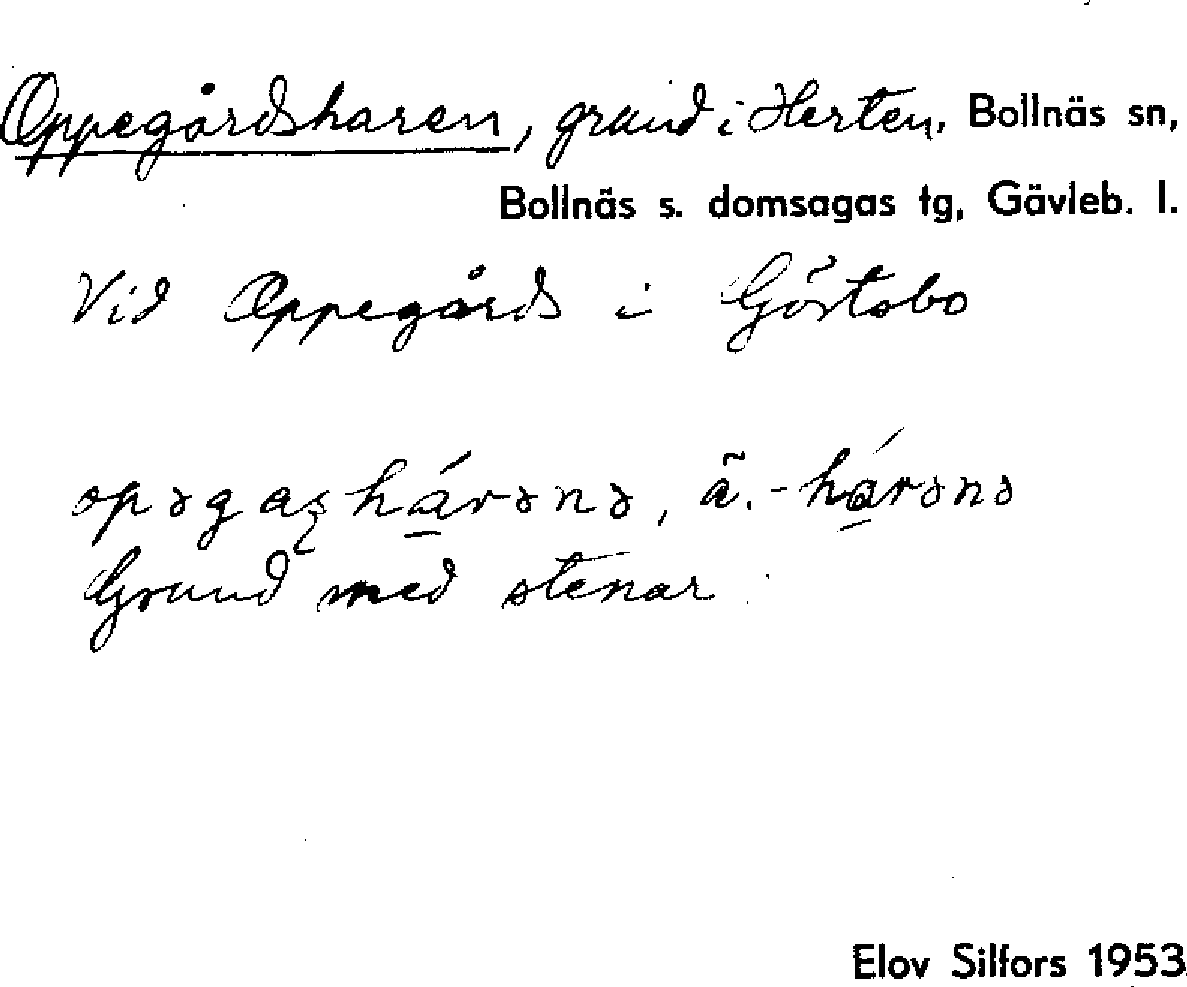 Oppegårdsharen, grund i Herten, Bollnäs sn,
Bollnäs s. domsagas tg, Gävleb. l.
Vid Oppegårds i Görtsbo
opəgaʂhárənə, ä. -hárənə
Grund med stenar
Elov Silfors 1953